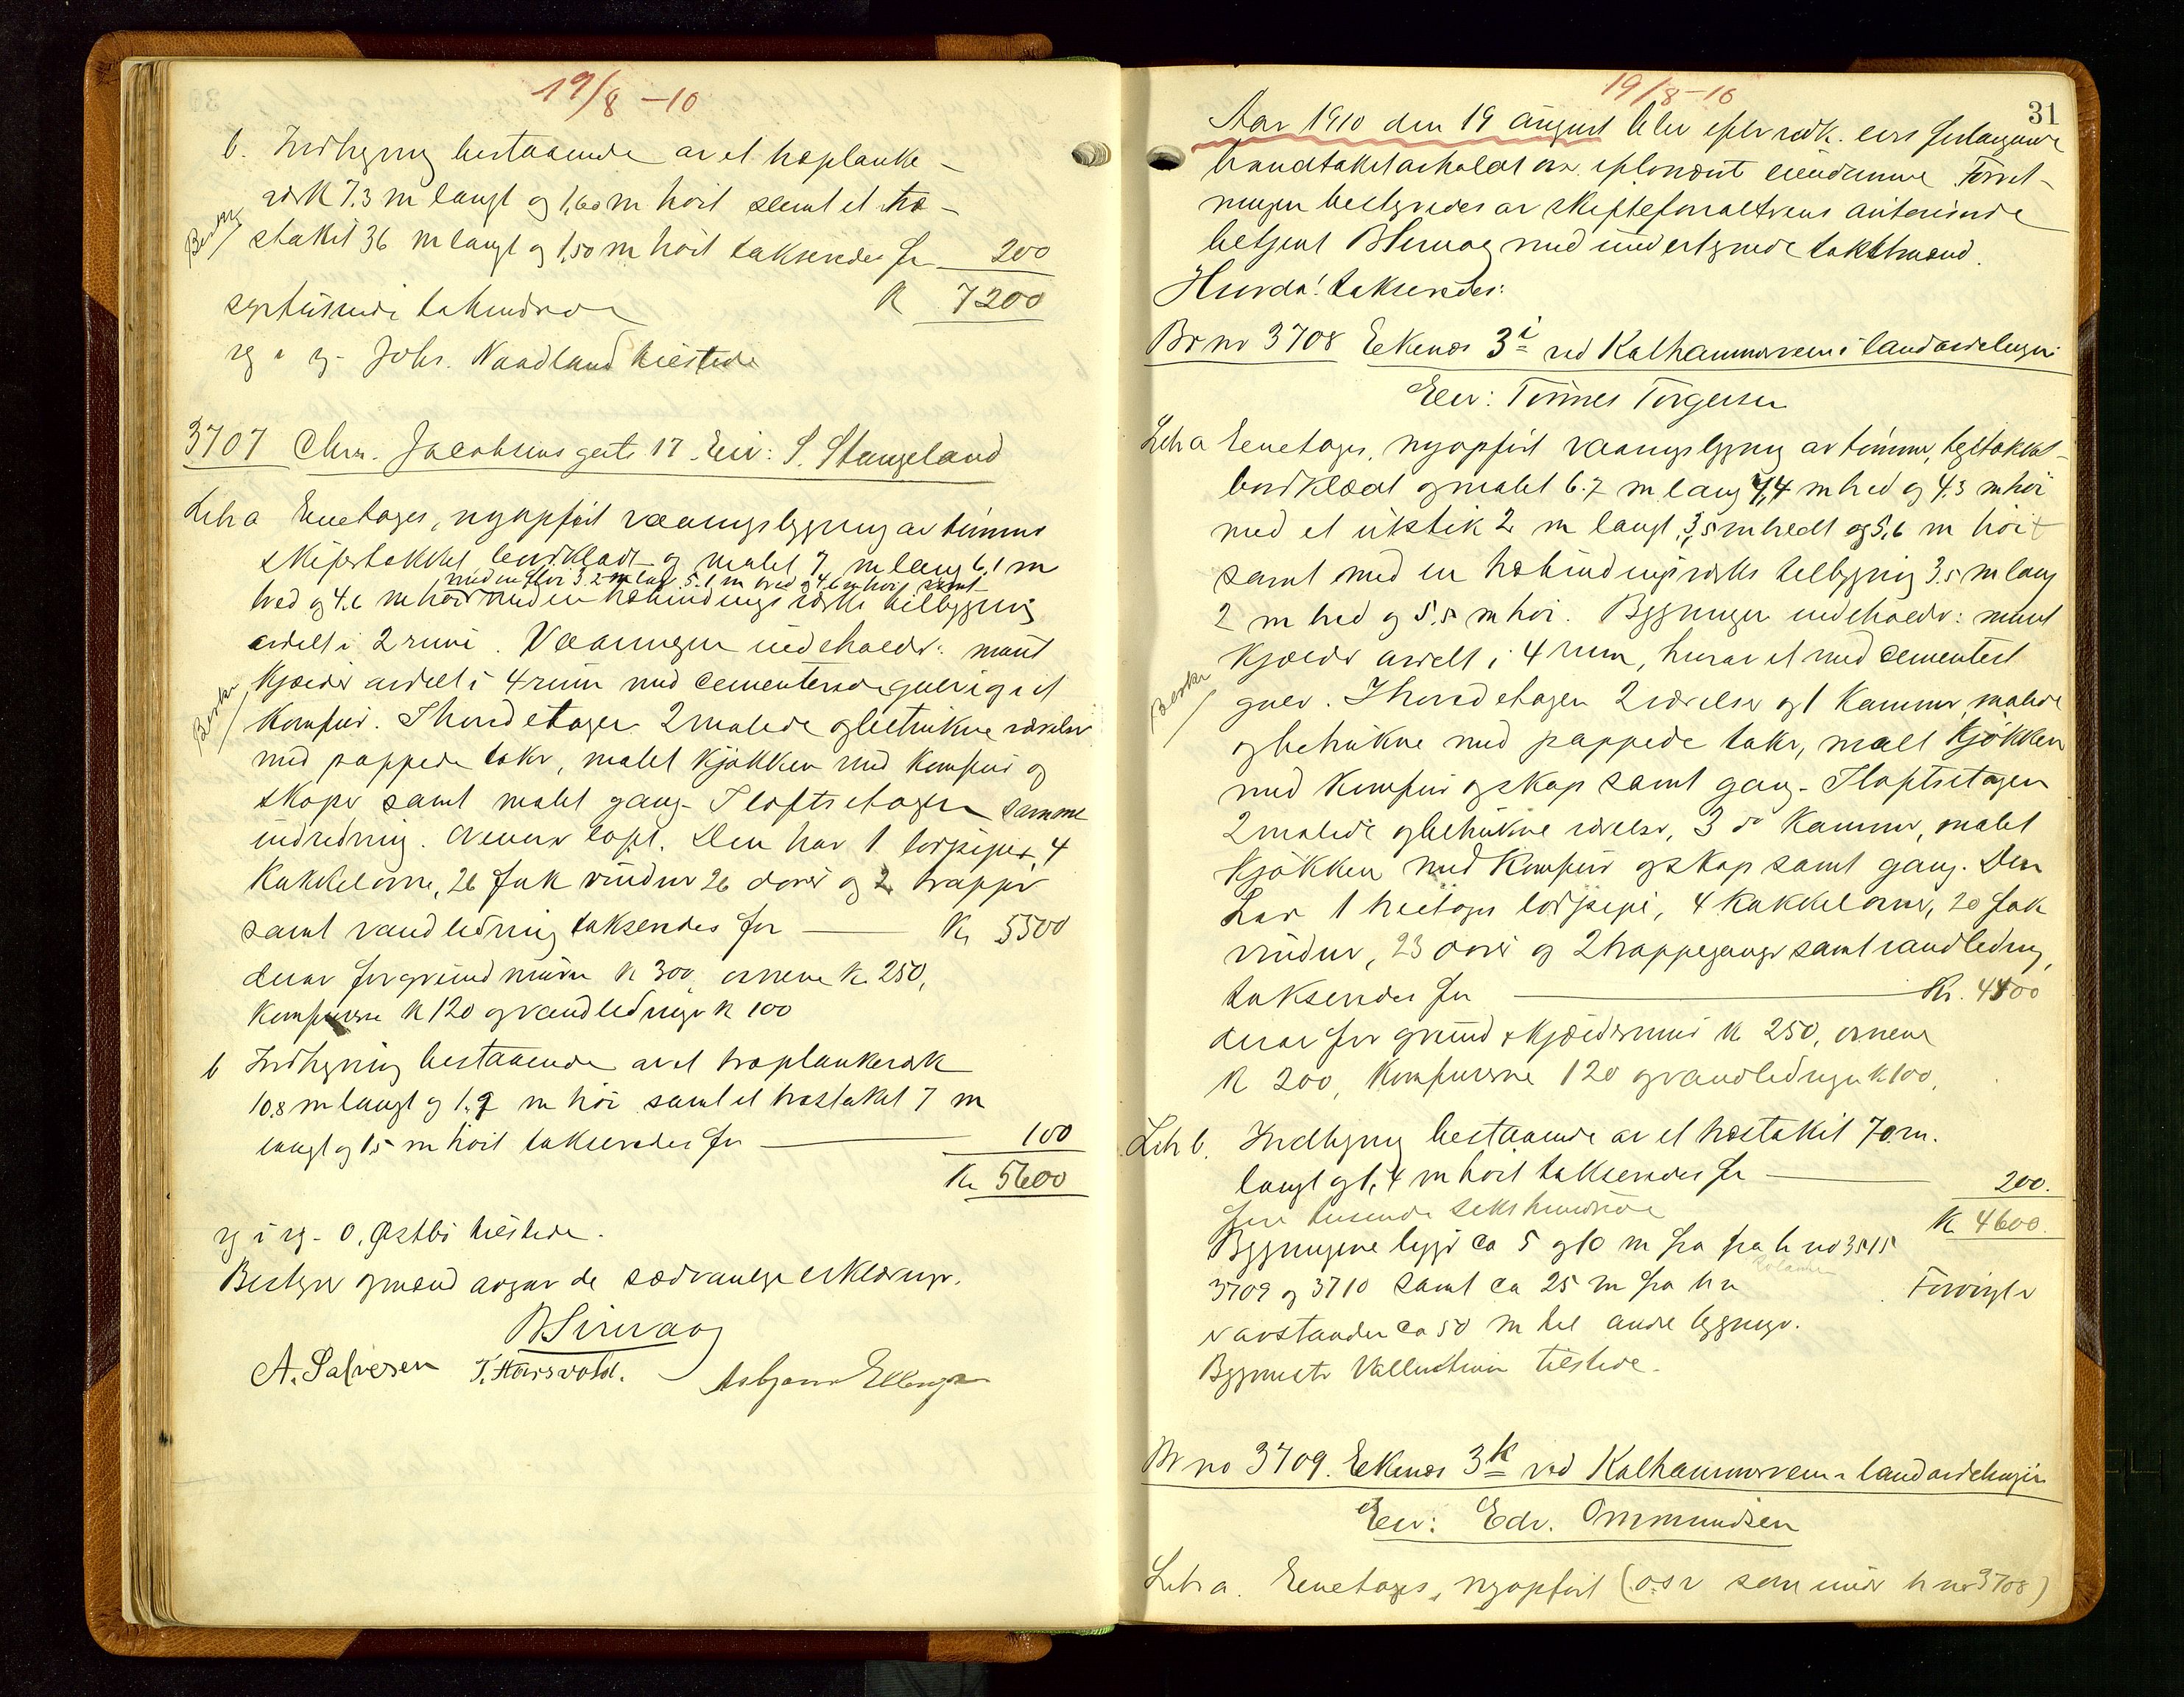 19/8 -10
b. Indhegning bestaaende av et træplanke-
værk 7.3 m langt og 1,60 m høit samt et træ-
stakit 36 m langt og 1,50 m høit takseredes for 200
syvtusinde tohundrede K 7200
Johs. Naadland tilstede
3707 Chr. Jacobsens gate 17. Eier: S. Stangeland
Litra a Eenetages, nyopført vaaningsbygning av tømmer
skifertækket, bordklædt og malet 7 m lang 6,1 m
med en fløi 3.2 m lang 5.1 m bred og 4,6 m høi samt
bred og 4.6 m høi med en træbindingsværks tilbygning
avdelt i 2 rum. Vaaningen indeholder: muret
kjælder avdelt i 4 rum med cementerede gulv og i et
komfur. I hovedetagen 2 malede og betrukne værelser
med pappede taker, malet kjøkken med komfur og
skaper samt malet gang. I loftsetagen samme
indredning. Øverst loft. Den har 1 torvpipe, 4
kakkelovne, 26 fak vinduer 26 dører og 2 trapper
samt vandledning takseredes for Kr 5500
derav for grundmuren K 300, ovnene K. 250,
komfurene K 120 og vandledninger K 100
b Indhegning bestaaende av et træplankeværk
10.8 m langt og 1.9 m høi samt et træstakit 7 m
langt og 1.5 m høit takseredes for 100
Kr 5600
O. Østbø tilstede.
Bestyrer og mænd avgav de sædvanlige erklæringer.
BSirvaag
A. Salvesen T. Hausvold. Asbjørn Ellingsen
19/8-10
31
Aar 1910 den 19 august blev efter vedk. eiers forlangende
brandtakst avholdt over efternævnte eiendomme. Forret-
ningen bestyredes av skifteforvalterens autoriserede
betjent BSirvaag med undertegnede takstmænd.
Hvorda! takseredes:
Br no 3708 Eekenæs 3i ved Kalhammerveien i landavdelingen
Eier: Tønnes Torgersen
Litra a Eenetages, nyopført vaaningsbygning av tømmer, tegltækket-
bordklædt og malet 6.7 m lang 7,4 m bred og 4,3 m høi
med et utstik 2 m langt, 3,5 m bredt og 5,6 m høit
samt med en træbindingsværks tilbygning 3.5 m lang
2 m bred og 5,5 m høi. Bygningen indeholder: muret
kjælder avdelt i 4 rum, hvorav et med cementert
gulv. I hovedetagen 2 værelser og 1 kammer, malede
og betrukne med pappede taker, malt kjøkken
med komfur og skap samt gang. I loftsetagen
2 malede og betrukne værelser, 3 do kammer, malet
kjøkken med komfur og skap samt gang. Den
har 1 treetages torvpipe, 4 kakkelovner, 20 fak
vinduer, 23 dører og 2 trappeganger samt vandledning,
takseredes for Kr. 4400
derav for grund & kjældermur K 250, ovnene
K 200, komfurerne 120 og vandledningen K 100.
Litr b. Indhegning bestaaende av et træstakit 70 m.
langt og 1,4 m høit takseredes for 200.
fire tusende sekshundrede K 4600.
Bygningene ligger ca 5 og 10 m fra fra br no 3515
3709 og 3710 samt ca 25 m fra br no
avstanden ca 50 m til andre bygninger.
tilstede.
Br no 3709. Eekenæs 3k ved Kalhammerveien i landavdelingen
Eier: Edv. Ommundsen
Litr a. Eenetages, nyopført (o.s.v. som under br no 3708)